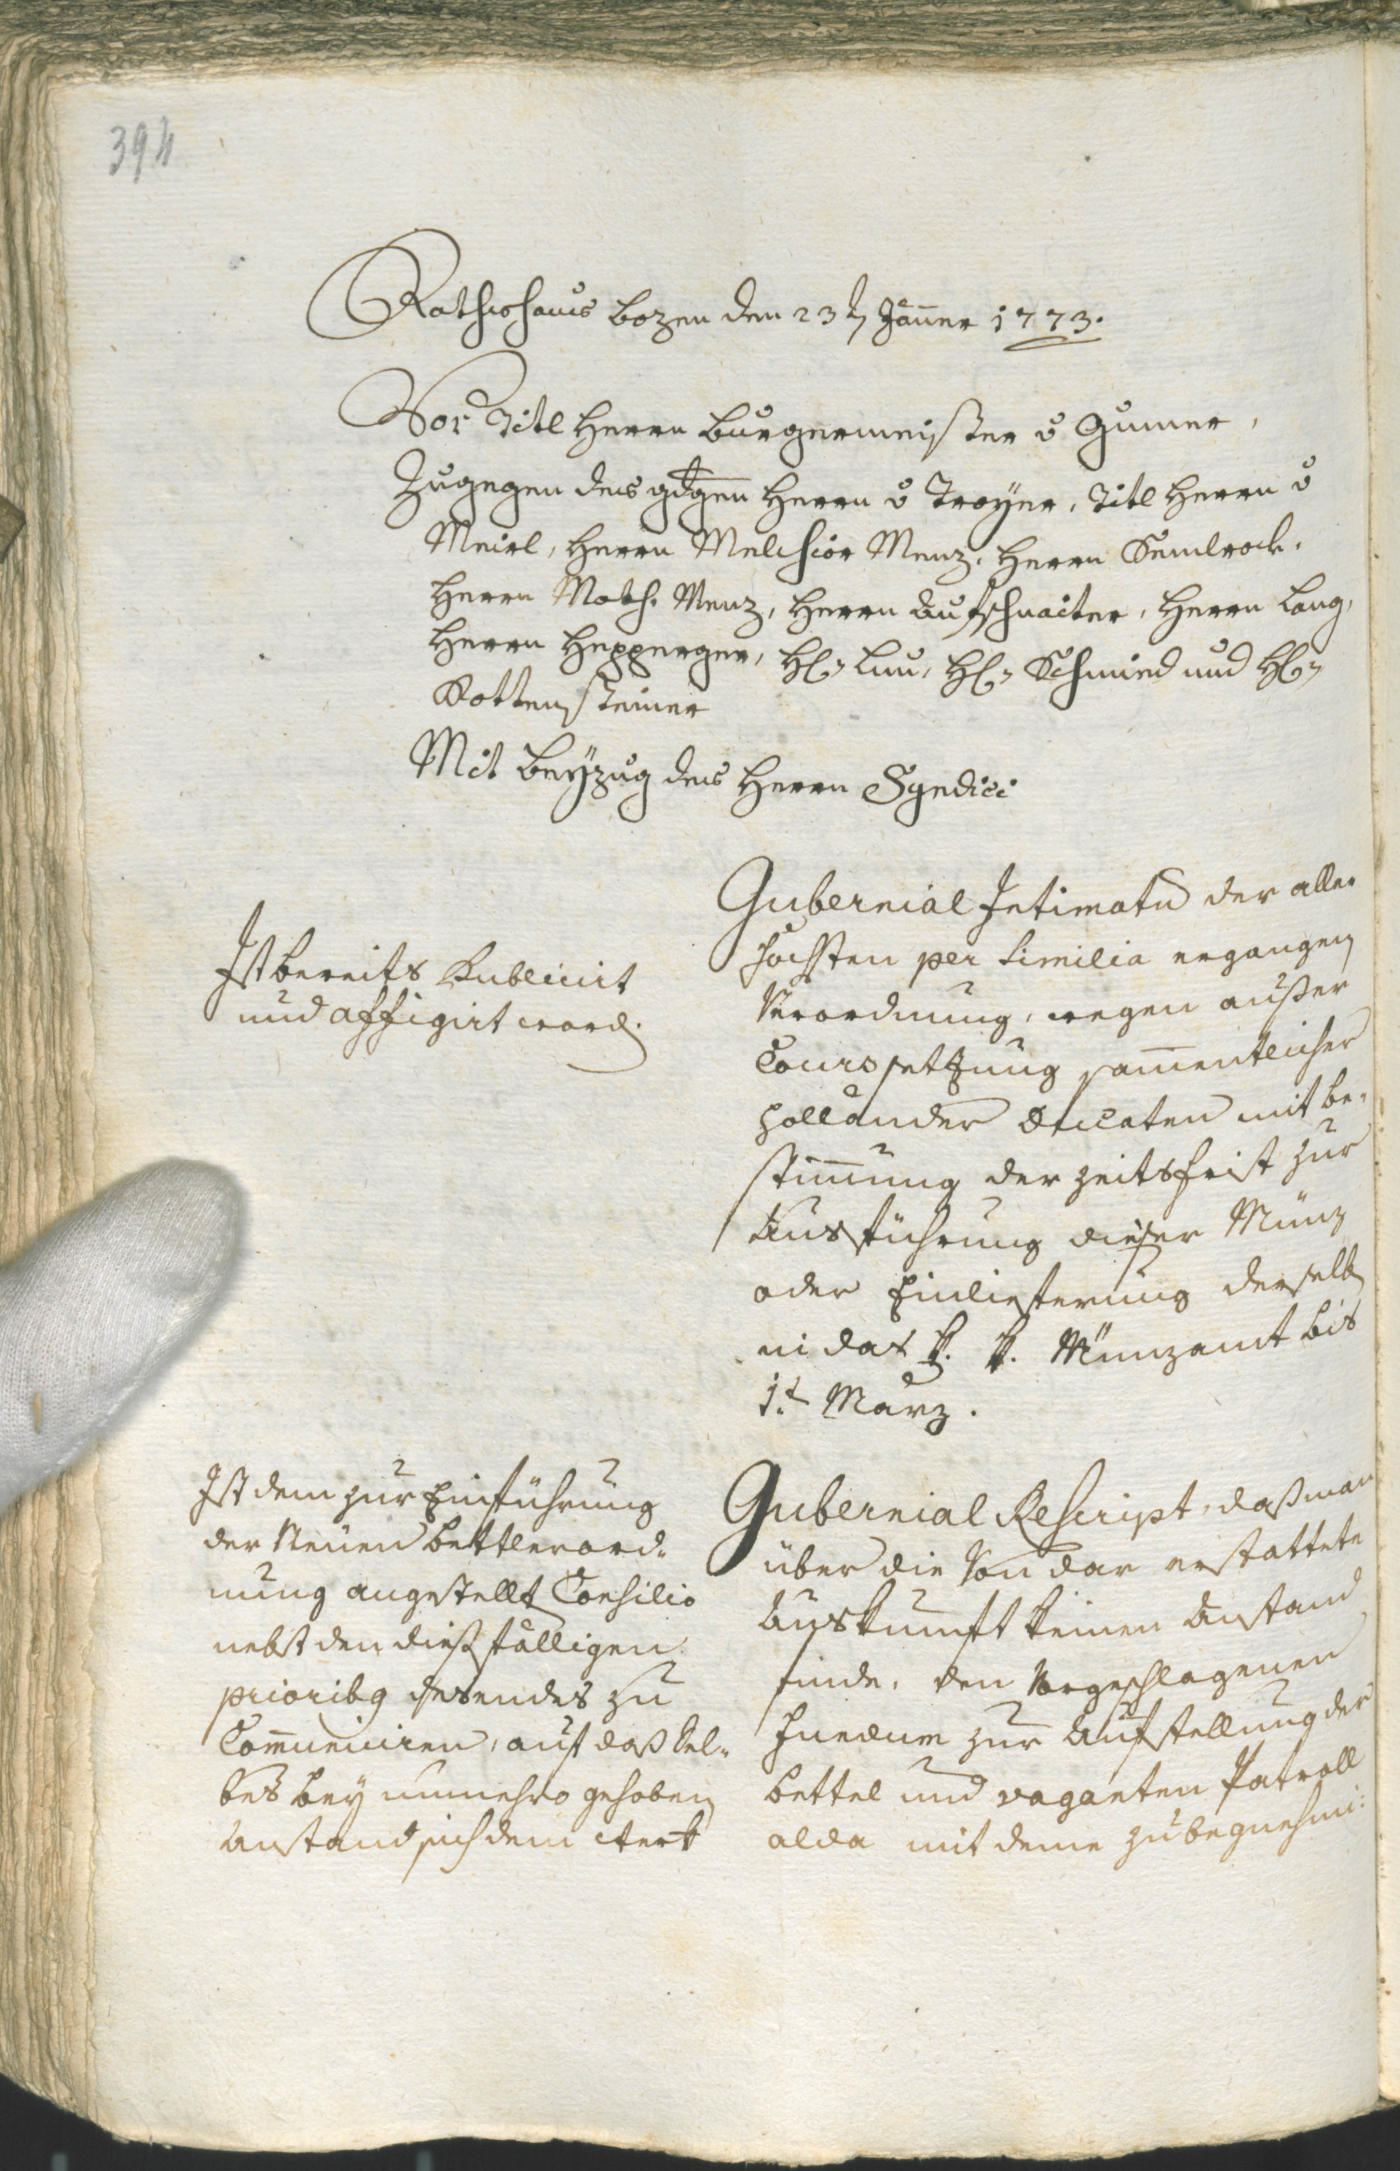 394
Rathshaus Bozen den 23ten Jänner 1773.
Vor Titl Herrn Burgermeister v Gumer,
Zugegen des gdgen Herrn v Troyer, Titl Herrn v
Meirl, Herrn Melchior Menz, Herrn Semlrock,
Herrn Math. Menz, Herrn Aufschnaiter, Herrn Lang,
Herrn Hepperger, H: Lun, H: Schmied und H:
Rottensteiner
Mit Beyzug des Herrn Syndici
Ist bereits Publicirt
und affigirt word.
Gubernial Intimatum der aller
höchsten per Similia ergangen
Verordnung, wegen ausser
Courssetzung sammentlicher
Holländer Ducaten mit be-
stimmung der zeitsfrist zur
Ausführung dieser Münz
oder Einlieferung derselb
in das k. k. Münzamt bis
1t März.
Ist dem zur Einführung
der Neuen Bettlerord-
nung angestellt Consilio
nebst den diesfälligen
prioribus zu
Communiciren, auf daß sel-
bes bey nunmehro gehoben
Anstand sich dem Werk
Gubernial Rescript, daß man
über die von dar erstattete
Auskunft keinen Anstand
finde, den Vorgeschlagenen
Fundum zur Aufstellung der
Bettel und vaganten Patroll
alda mit deme zu begnehmi-